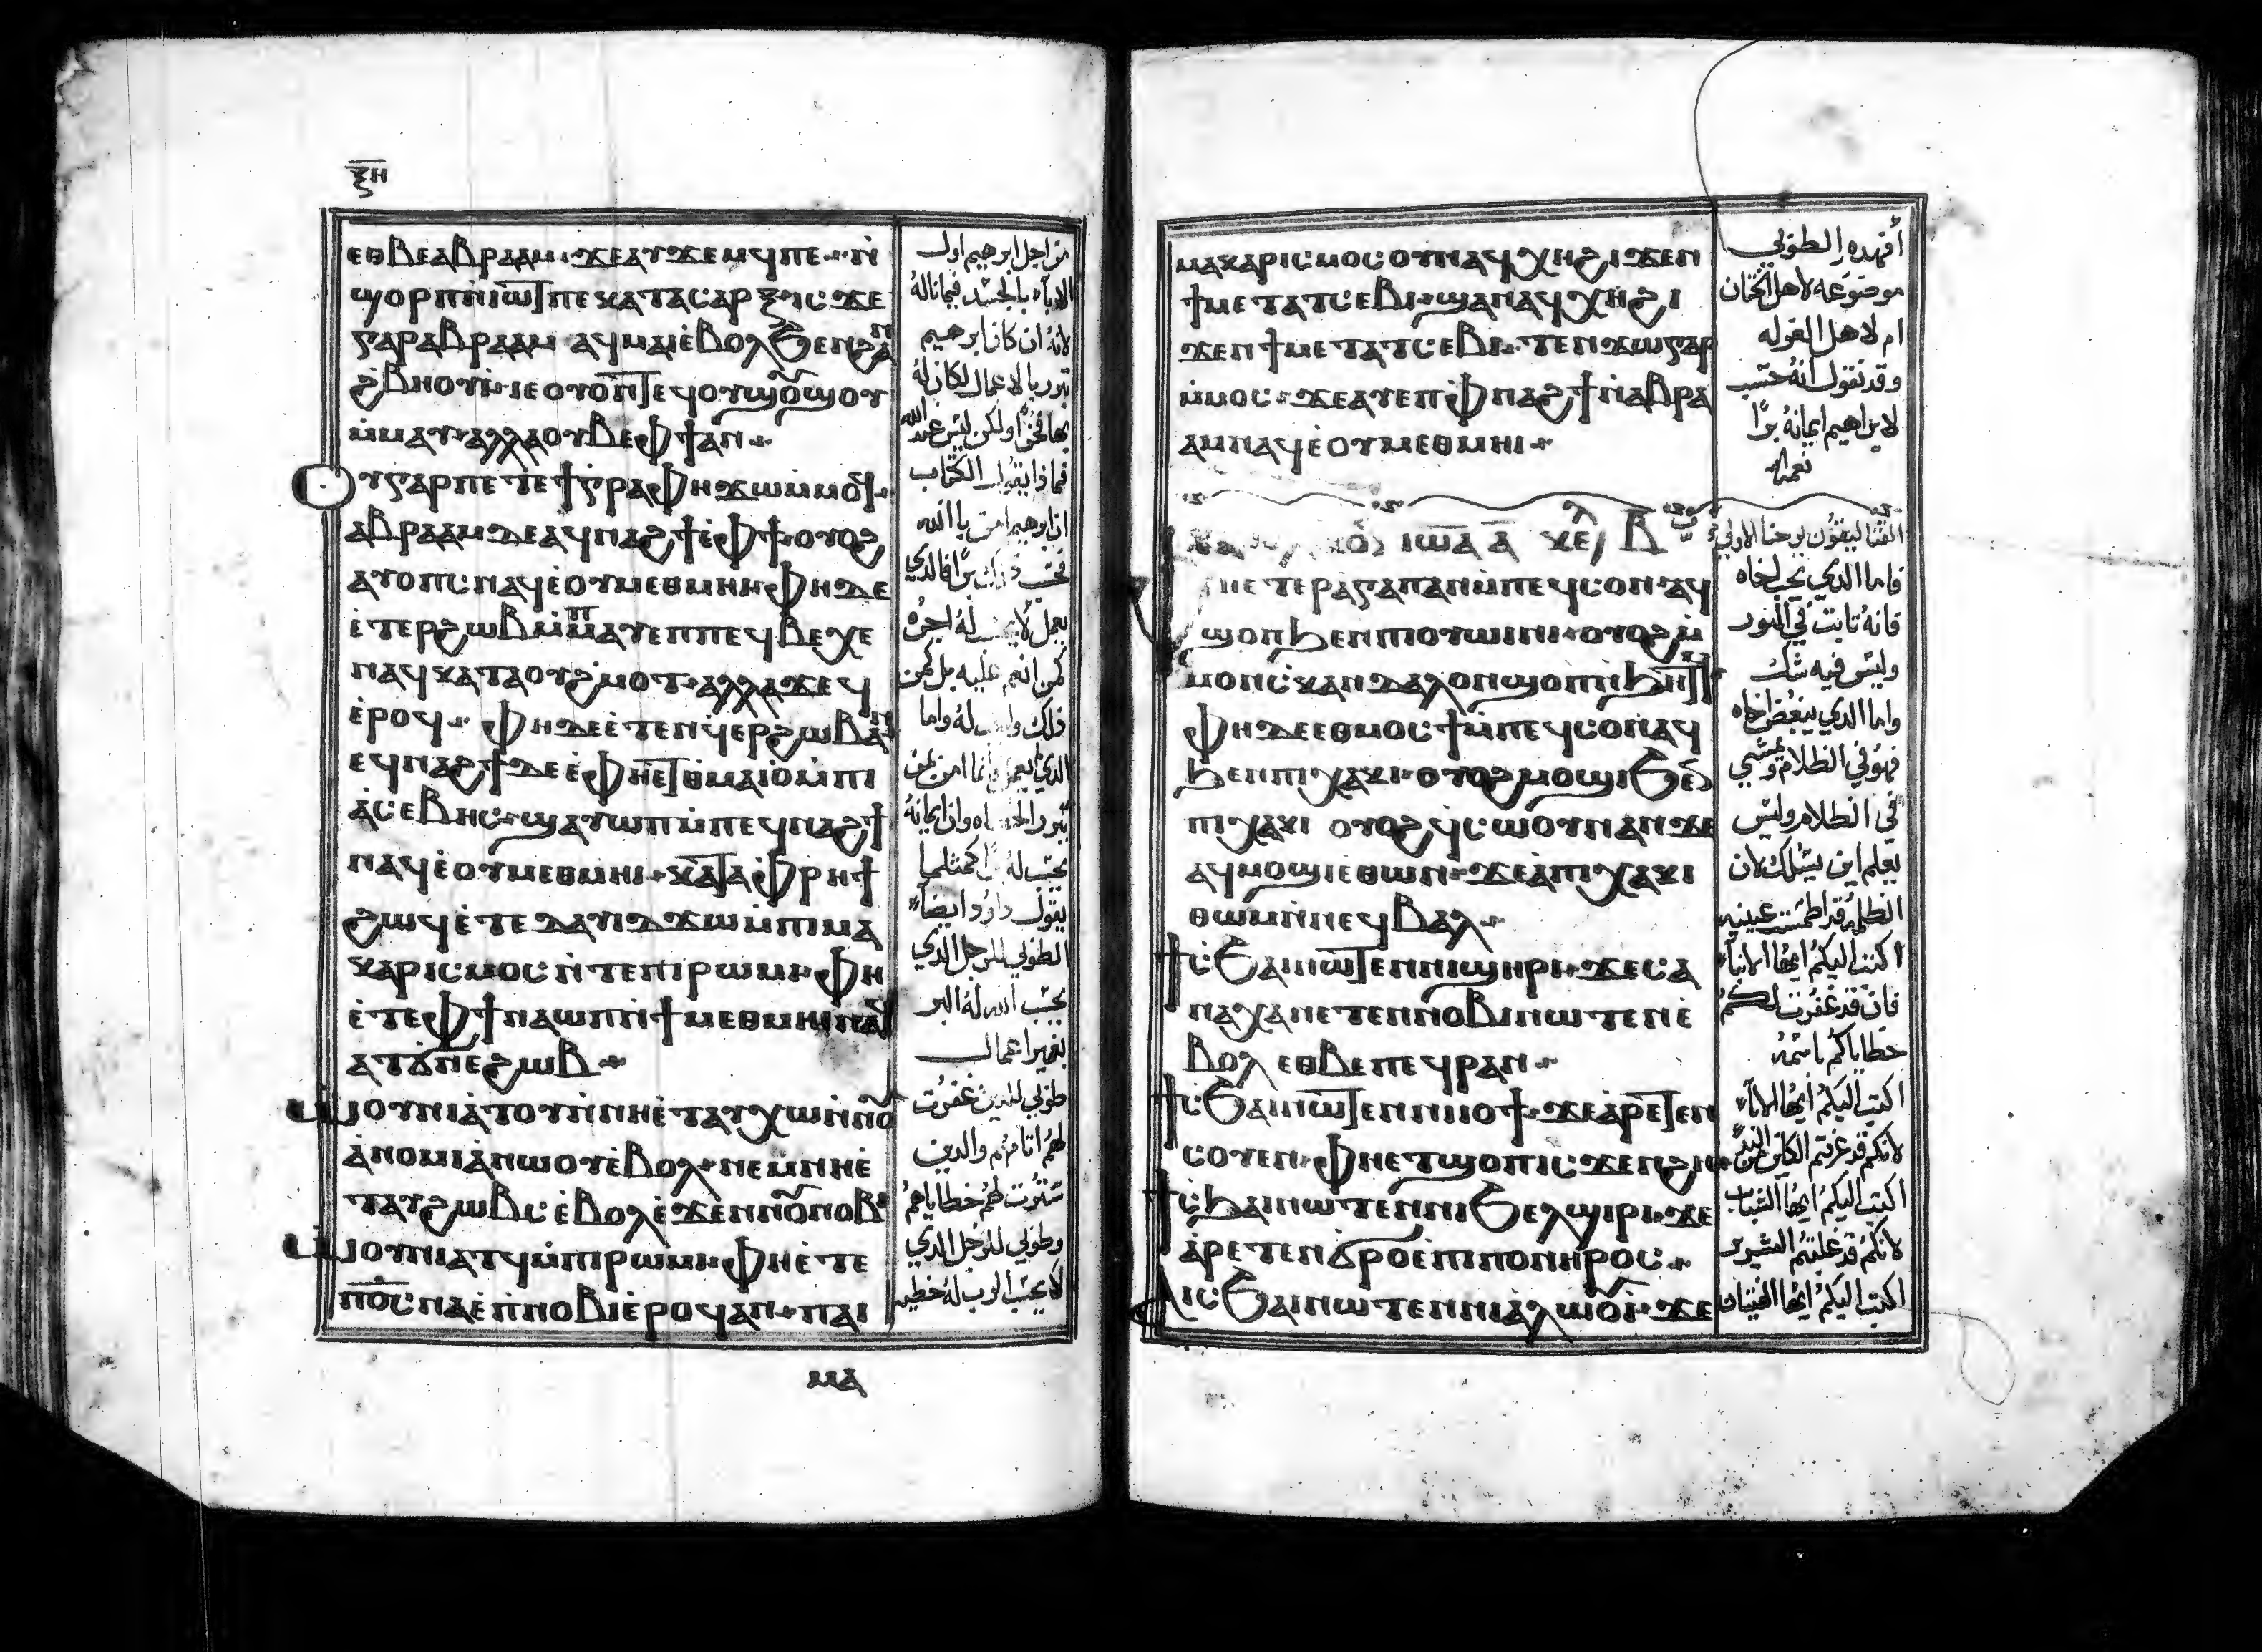 ⲝⲏ
ⲉⲑⲃⲉⲁⲃⲣⲁⲁⲙ ϫⲉⲁⲩϫⲉⲙϥⲡⲉ ⲛ̀
ϣⲟⲣⲡⲛ̀ⲓⲱⲧⲡⲉⲕⲁⲧⲁⲥⲁⲣⲝⲓⲥϫⲉ
ⲅⲁⲣⲁⲃⲣⲁⲁⲙ ⲁϥⲙⲁⲓⲉ̀ⲃⲟⲗϧⲉⲛϩⲁⲛ
ϩ̀ⲃⲏⲟⲩⲓ̀ ⲓⲉⲟⲩⲟⲛⲧⲉϥⲟⲩϣⲟⲩϣⲟⲩ
ⲙ̀ⲙⲁⲩ ⲁⲗⲗⲁⲟⲩⲃⲉⲫϯⲁⲛ
ⲟⲩⲅⲁⲣⲡⲉⲧⲉϯⲅⲣⲁⲫⲏϫⲱⲙ̀ⲙⲟϥ
ⲁⲃⲣⲁⲁⲙⲇⲉⲁϥⲛⲁϩϯⲉ̀ⲫϯ ⲟⲩⲟϩ
ⲁⲩⲟⲡⲥⲛⲁϥⲉ̀ⲟⲩⲙⲉⲑⲙⲏⲓ ⲫⲏⲇⲉ
ⲉ̀ⲧⲉⲣϩⲱⲃⲙ̀ⲡⲁⲩⲉⲡⲡⲉϥⲃⲉⲭⲉ
ⲛⲁϥⲕⲁⲧⲁⲟⲩϩ̀ⲙⲟⲧ ⲁⲗⲗⲁϫⲉϥ
ⲉ̀ⲣⲟϥ ⲫⲏⲇⲉⲉ̀ⲧⲉⲛϥ̀ⲉⲣϩⲱⲃⲁⲛ
ⲉϥⲛⲁϩϯⲇⲉⲉ̀ⲫⲏⲉⲧⲑⲙⲁⲓⲟ̀ⲙ̀ⲡⲓ
ⲁ̀ⲥⲉⲃⲏⲥ ϣⲁⲩⲱⲡⲙ̀ⲡⲉϥⲛⲁϩϯ
ⲛⲁϥⲉ̀ⲟⲩⲙⲉⲑⲙⲏⲓ ⲕⲁⲧⲁⲫ̀ⲣⲏϯ
ϩⲱϥⲉ̀ⲧⲉⲇⲁⲩⲓⲇϫⲱⲙ̀ⲡⲓⲙⲁ
ⲕⲁⲣⲓⲥⲙⲟⲥⲛ̀ⲧⲉⲡⲓⲣⲱⲙⲓ ⲫⲏ
ⲉ̀ⲧⲉⲫϯⲛⲁⲱⲡⲛ̀ϯⲙⲉⲑⲙⲏⲓⲛⲁϥ
ⲁⲧϭⲛⲉϩⲱⲃ
ⲱⲟⲩⲛⲓⲁ̀ⲧⲟⲩⲛ̀ⲛⲏⲉ̀ⲧⲁⲩⲭⲱⲛ̀ⲛⲟⲩ
ⲁ̀ⲛⲟⲙⲓⲁ̀ⲛⲱⲟⲩⲉ̀ⲃⲟⲗ ⲛⲉⲙⲛⲏⲉ̀
ⲧⲁⲩϩⲱⲃⲥⲉ̀ⲃⲟⲗⲉ̀ϫⲉⲛⲛⲟⲩⲛⲟⲃⲓ
ⲱⲟⲩⲛⲓⲁⲧϥⲙ̀ⲡⲓⲣⲱⲙⲓ ⲫⲏⲉ̀ⲧⲉ
ⲡⲟ̅ⲥ̅ⲛⲁⲉ̀ⲡⲛⲟⲃⲓⲉ̀ⲣⲟϥⲁⲛ ⲡⲁⲓ
ⲙⲁ
من اجل ابرهيم اول
الاباء بالجسد فيما ناله
لانه ان كان ابرهيم
تبرر بالاعمال لكان له
بها فخرا ولكن ليس عند الله
فماذا يقول الكتاب
ان ابرهيم امن باالله
فحسب ذلك برا فالذي
يعمل لا يحسب له اجره
كمن انعم عليه بل كمن
ذلك واجب له واما
الذي لم يعمل وانما امن بمن
يبرر الخطاه وان ايمانه
يحسب له برا كمثلما
يقول داوود ايضا
الطوبى للرجل الذي
يحسب الله له البر
بغير اعمال
طوبى للذين غفرت
لهم اثامهم والذين
سترت لهم خطاياهم
وطوبى للرجل الذي
لا يحسب الرب له خطيه
ⲙⲁⲕⲁⲣⲓⲥⲙⲟⲥⲟⲩⲛⲁϥⲭⲏϩⲓϫⲉⲛ
ϯⲙⲉⲧⲁⲧⲥⲉⲃⲓ ϣⲁⲛⲁϥⲭⲏϩⲓ
ϫⲉⲛϯⲙⲉⲧⲁⲧⲥⲉⲃⲓ ⲧⲉⲛϫⲱⲅⲁⲣ
ⲙ̀ⲙⲟⲥ ϫⲉⲁⲩⲉⲡⲫ̀ⲛⲁϩϯⲛ̀ⲁⲃⲣⲁ
ⲁⲙⲛⲁϥⲉ̀ⲟⲩⲙⲉⲑⲙⲏⲓ
ⲓⲱⲁ ⲁ̅ ⲕⲉ ⲃ
ⲡⲉⲧⲉⲣⲁⲅⲁⲡⲁⲛⲙ̀ⲡⲉϥⲥⲟⲛ ⲁϥ
ϣⲟⲡϧⲉⲛⲡⲓⲟⲩⲱⲓⲛⲓ ⲟⲩⲟϩⲙ̀
ⲙⲟⲛⲥ̀ⲕⲁⲛⲇⲁⲗⲟⲛϣⲟⲡⲛ̀ϧⲏⲧϥ
ⲫⲏⲇⲉⲉⲑⲙⲟⲥϯⲙ̀ⲡⲉϥⲥⲟⲛⲁϥ
ϧⲉⲛⲡⲓⲭⲁⲕⲓ ⲟⲩⲟϩⲙⲟϣⲓϧⲉⲛ
ⲡⲓⲭⲁⲕⲓ ⲟⲩⲟϩϥ̀ⲥⲱⲟⲩⲛⲁⲛϫⲉ
ⲁϥⲙⲟϣⲓⲉⲑⲱⲛ ϫⲉⲁ̀ⲡⲓⲭⲁⲕⲓ
ⲑⲱⲙⲛ̀ⲛⲉϥⲃⲁⲗ
ϯⲥϧⲁⲓⲛⲱⲧⲉⲛⲛⲓϣⲏⲣⲓ ϫⲉⲥⲁ
ⲛⲁⲭⲁⲛⲉⲧⲉⲛⲛⲟⲃⲓⲛⲱⲧⲉⲛⲉ̀
ⲃⲟⲗ ⲉⲑⲃⲉⲡⲉϥⲣⲁⲛ
ϯⲥϧⲁⲓⲛⲱⲧⲉⲛⲛⲓⲓⲟϯ ϫⲉⲁ̀ⲣⲉⲧⲉⲛ
ⲥⲟⲩⲉⲛ ⲫⲏⲉⲧϣⲟⲡⲓⲥϫⲉⲛϩⲏ
ϯⲥϧⲁⲓⲛⲱⲧⲉⲛⲛⲓϧⲉⲗϣⲓⲣⲓ ϫⲉ
ⲁ̀ⲣⲉⲧⲉⲛϭⲣⲟⲉ̀ⲡⲓⲡⲟⲛⲏⲣⲟⲥ
ⲁⲓⲥϧⲁⲓⲛⲱⲧⲉⲛⲛⲓⲁ̀ⲗⲱⲟⲩⲓ̀ ϫⲉ
أفهذه الطوبي
موضوعه لاهل الختان
ام لاهل الغرله
وقد نقول انه حسب
لابراهيم ايمانه برا
نعمه
القثاليقون يوحنا الاولي
فاما الذي يحب اخاه
فانه ثابت في النور
وليس فيه شك
واما الذي يبغض اخاه
فهو في الظلام ويمشي
في الظلام وليس
يعلم اين يسلك لان
الظلمه قد اطمست عينيه
اكتب اليكم ايها الابناء
فان قد غفرت لكم
خطاياكم باسمه
اكتب اليكم ايها الاباء
لانكم قد عرفتم الكاين منذ البدى
اكتب اليكم ايها الشباب
لانكم قد غلبتم الشرير
اكتب اليكم ايها الفتيان